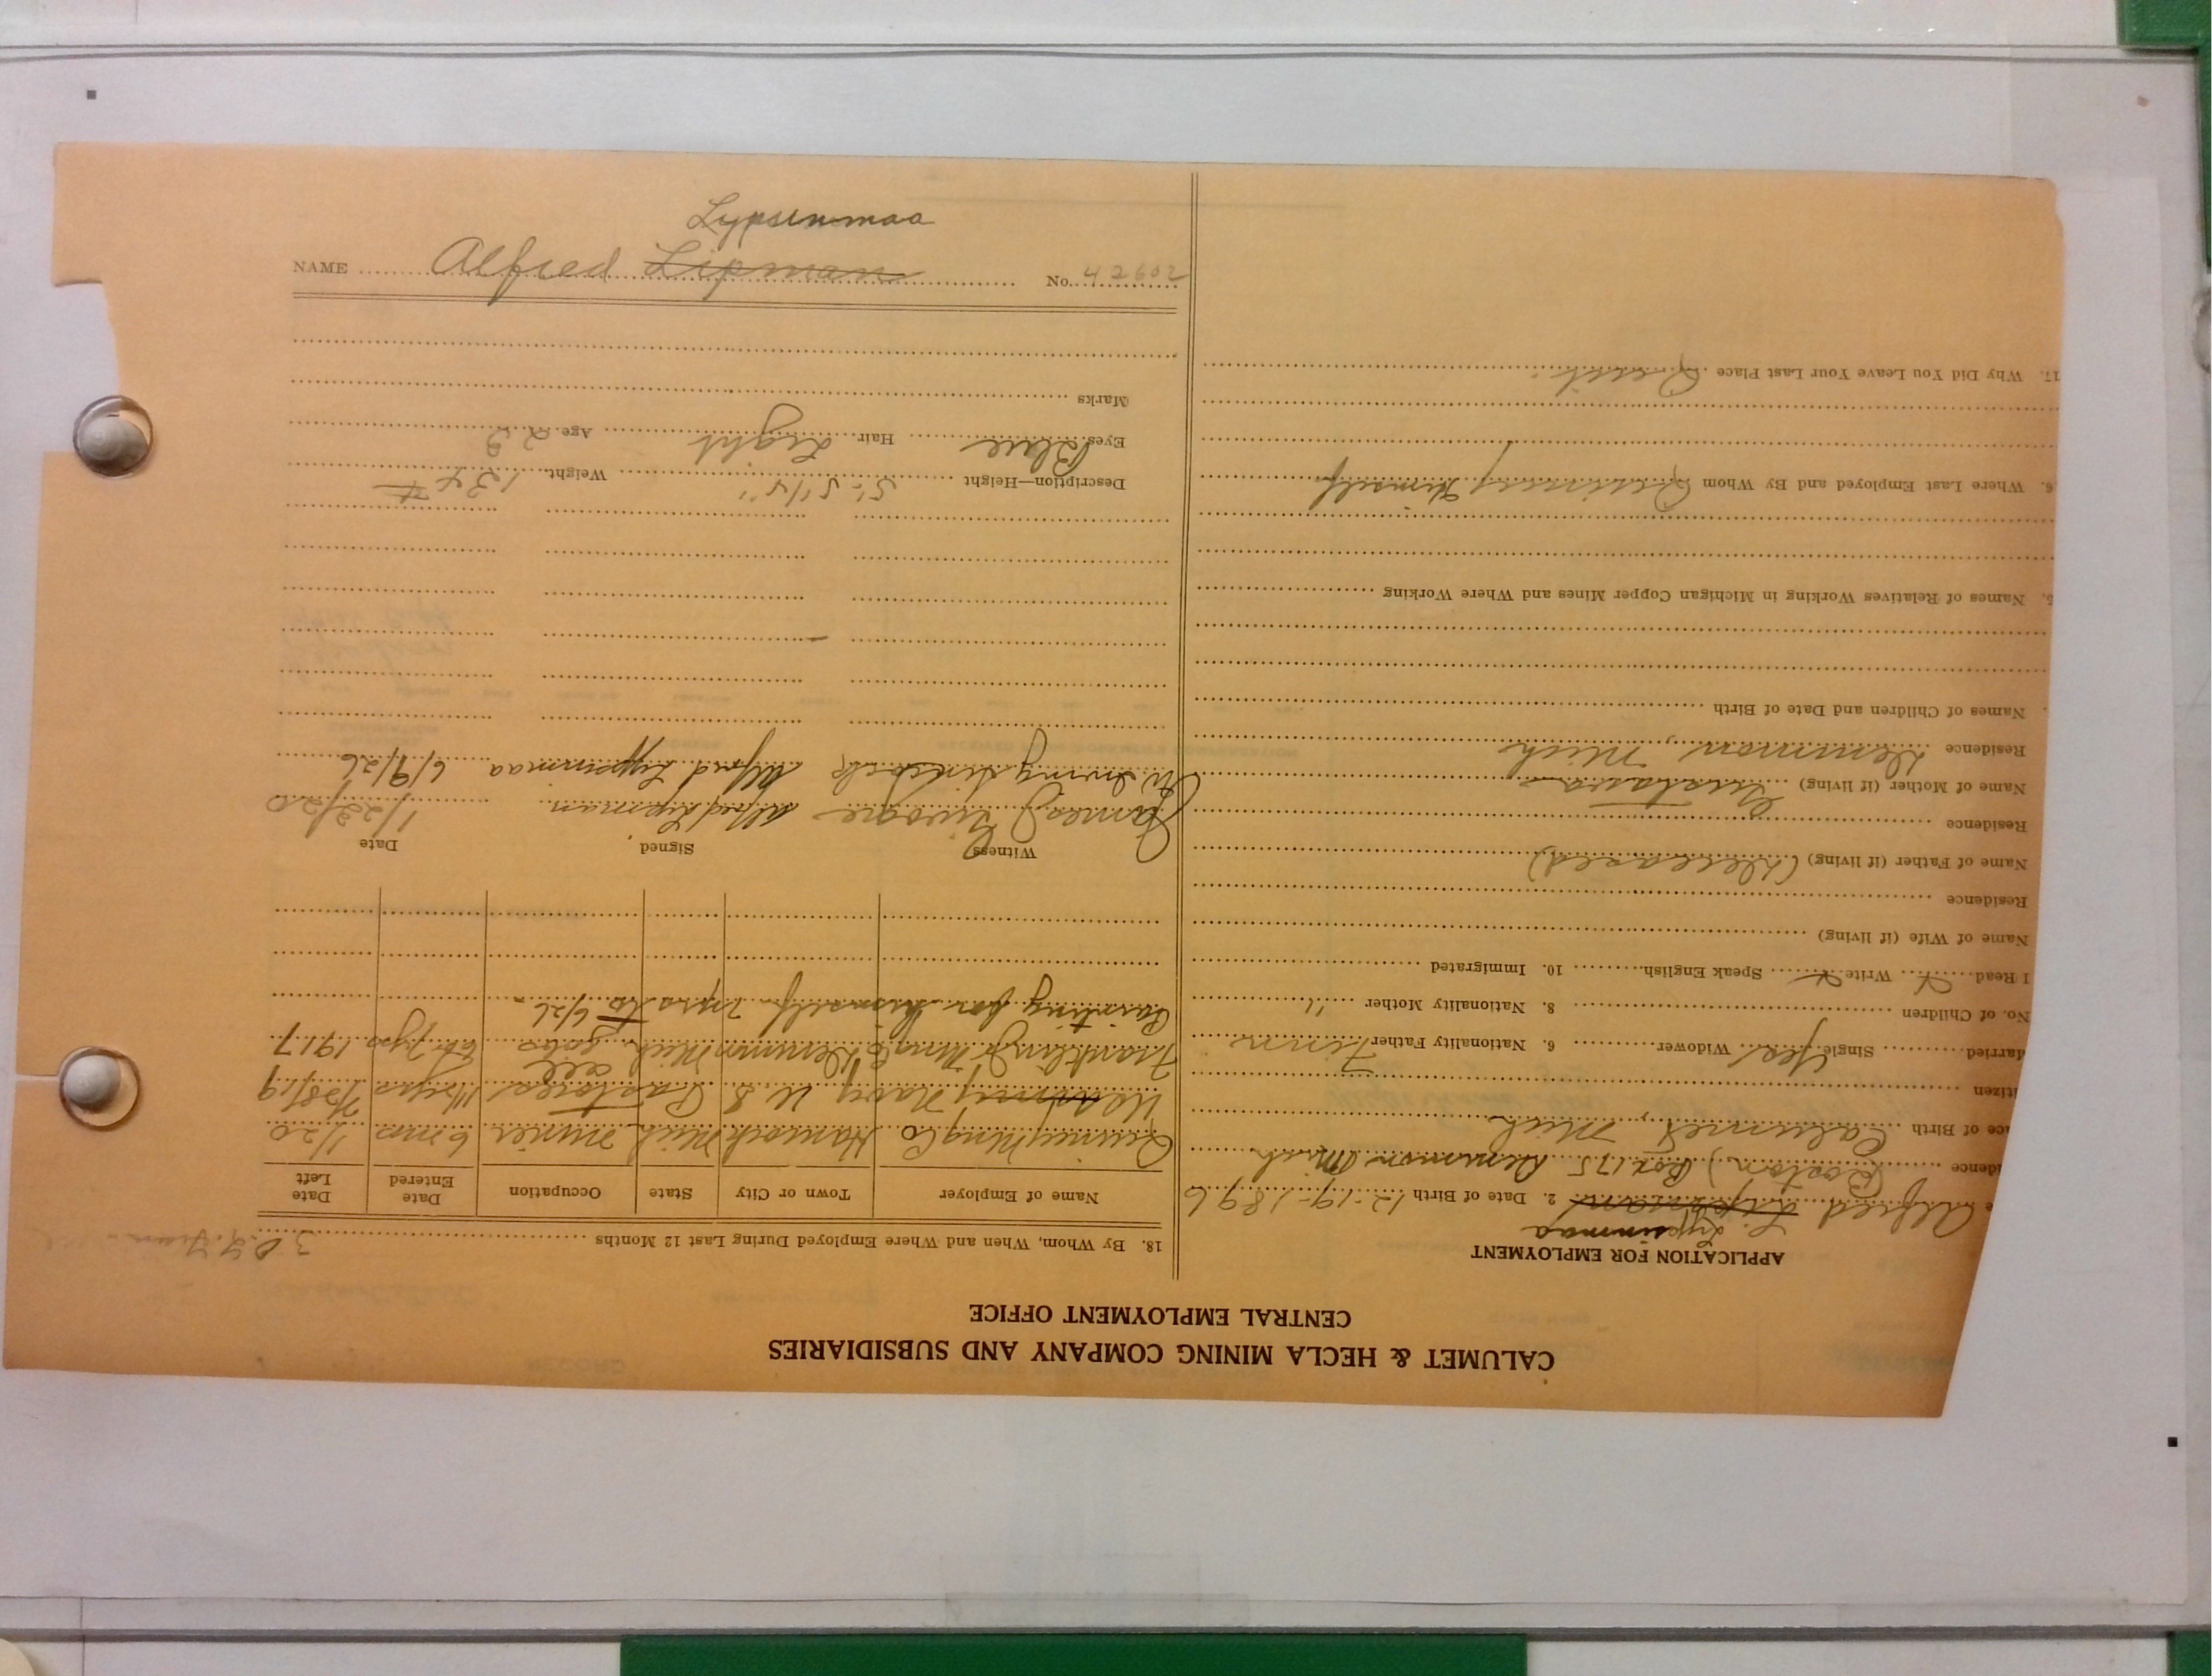 CALUMET & HECLA MINING COMPANY AND SUBSIDIARIES
CENTRAL EMPLOYMENT OFFICE
APPLICATION FOR EMPLOYMENT
Lypsinmaa
e Alfred Lipman 2. Date of Birth 12-19-1896
idence (Boston) Box 175 Demmon Mich
ace of Birth Calumet, Mich
itizen
Married Single Yes Widower 6. Nationality Father Finn
No. of Children 8. Nationality Mother "
I Read X Write X Speak English 10. Immigrated
Name of Wife (if living)
Residence
Name of Father (if living) (Deceased)
Residence
Name of Mother (if living) Gustava
Residence Demmon, Mich
. Names of Children and Date of Birth
5. Names of Relatives Working in Michigan Copper Mines and Where Working
6. Where Last Employed and By Whom Quincy Himself
17. Why Did You Leave Your Last Place Quit
18. By Whom, When and Where Employed During Last 12 Months
Name of Employer Town or City State Occupation Date Entered Date Left
Quincy Mng Co Hancock Mich miner 6 mos 1/20
US Army Navy U.S. 7/28/19
Franklin Mng Co Demmon Mich 1917
Painting for himself 2 yrs to 6/26
Witness Signed Date
James Alfred Lipman 1/22/20
W. Irving Alfred Lypsinmaa 6/9/26
Description—Height 5'-5 1/4" Weight 134 #
Eyes Blue Hair Light Age 23
Marks
Lypsinmaa
NAME Alfred Lipman No. 42602